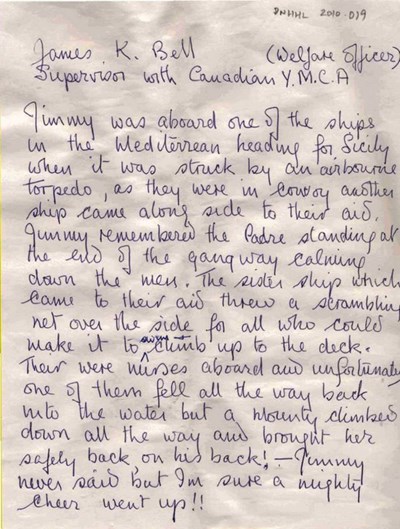 DNHHL 2010-019
James K. Bell (Welfare Officer)
Supervisor with Canadian Y.M.C.A
Jimmy was aboard one of the ships
in the Mediterrean heading for Sicily
when it was struck by an airbourne
torpedo, as they were in convoy another
ship came along side to their aid.
Jimmy remembered the Padre standing at
the end of the gangway calming
down the men. The sister ship which
came to their aid threw a scrambling
net over the side for all who could
make it to swing climb up to the deck.
Their were nurses aboard and unfortunately
one of them fell all the way back
into the water but a Mounty climbed
down all the way and brought her
safely back, on his back! — Jimmy
never said but I'm sure a mighty
Cheer went up!!